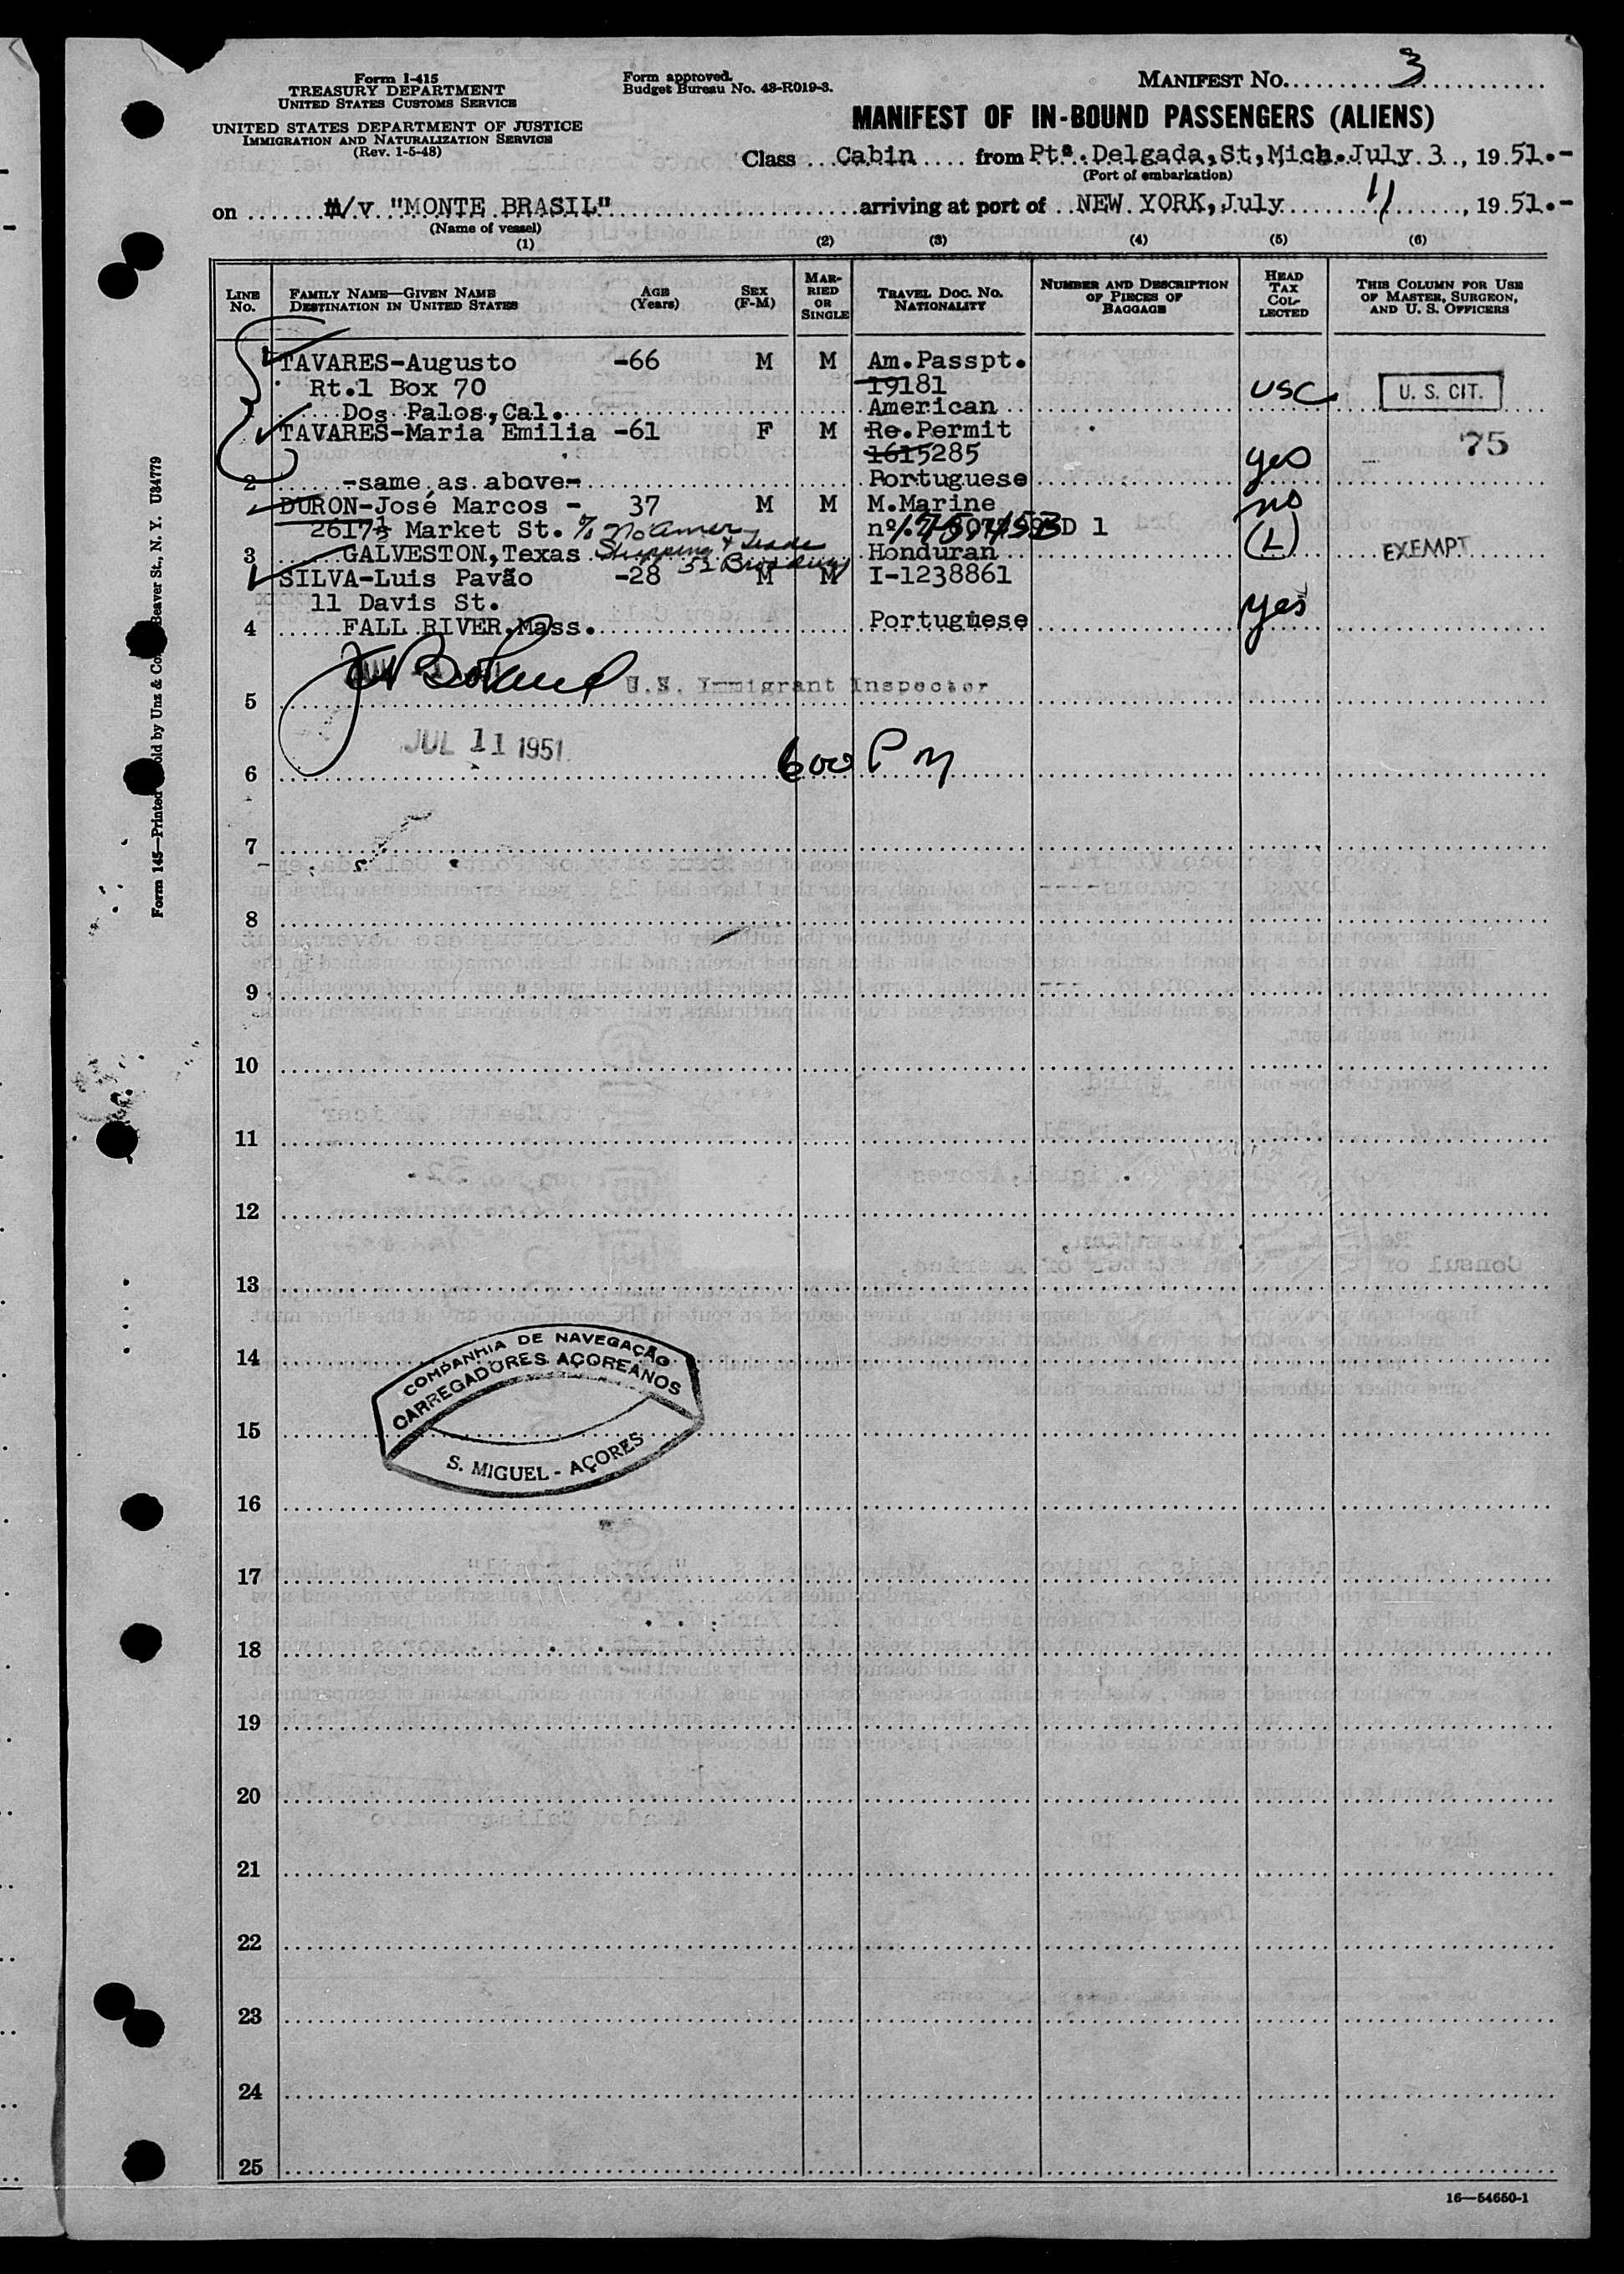 Form I-415
TREASURY DEPARTMENT
UNITED STATES CUSTOMS SERVICE
UNITED STATES DEPARTMENT OF JUSTICE
IMMIGRATION AND NATURALIZATION SERVICE
(Rev. 1-5-48)
Form approved.
Budget Bureau No. 43-R019-3.
MANIFEST No. 3
MANIFEST OF IN-BOUND PASSENGERS (ALIENS)
Class Cabin from Ptª. Delgada, St, Mich. July 3, 1951.-
(Port of embarkation)
on m/v "MONTE BRASIL" arriving at port of NEW YORK, July 11, 1951.-
(Name of vessel)
(1) (2) (3) (4) (5) (6)
LINE No. FAMILY NAME—GIVEN NAME DESTINATION IN UNITED STATES AGE (Years) SEX (F-M) MARRIED OR SINGLE TRAVEL DOC. No. NATIONALITY NUMBER AND DESCRIPTION OF PIECES OF BAGGAGE HEAD TAX COLLECTED THIS COLUMN FOR USE OF MASTER, SURGEON, AND U. S. OFFICERS
TAVARES-Augusto -66 M M Am.Passpt.
Rt.1 Box 70 19181 USC U. S. CIT.
Dos Palos, Cal. American
TAVARES-Maria Emilia -61 F M Re.Permit 75
1615285 yes
2 -same as above- Portuguese
DURON-José Marcos - 37 M M M.Marine no
2617½ Market St. c/o No Amer nº D 1
Shipping & Trade
3 GALVESTON, Texas Honduran (L) EXEMPT
52 Broadway
SILVA-Luis Pavão -28 M M I-1238861
11 Davis St. yes
4 FALL RIVER, Mass. Portuguese
U.S. Immigrant Inspector
5
JUL 11 1951
600 PM
6
7
8
9
10
11
12
13
COMPANHIA DE NAVEGAÇÃO
CARREGADORES AÇOREANOS
S. MIGUEL - AÇORES
14
15
16
17
18
19
20
21
22
23
24
25
16—54650-1
Form 145—Printed old by Unz & Co Beaver St., N. Y. U34779